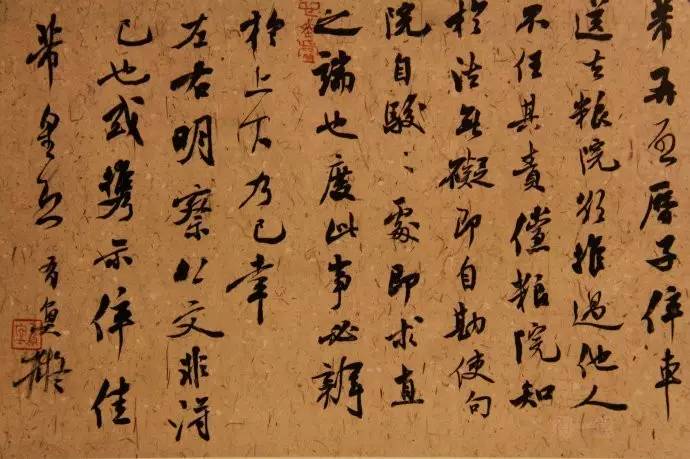 芾再啓曆子倅車
送左粮院欲推過他人
不任其責儻粮院知
於法無礙即自勘使句
院自駁〻處即求直
之端也度此事必辨
於上下乃已幸
左右明察公文非得
已也或携示倅佳
芾皇恐